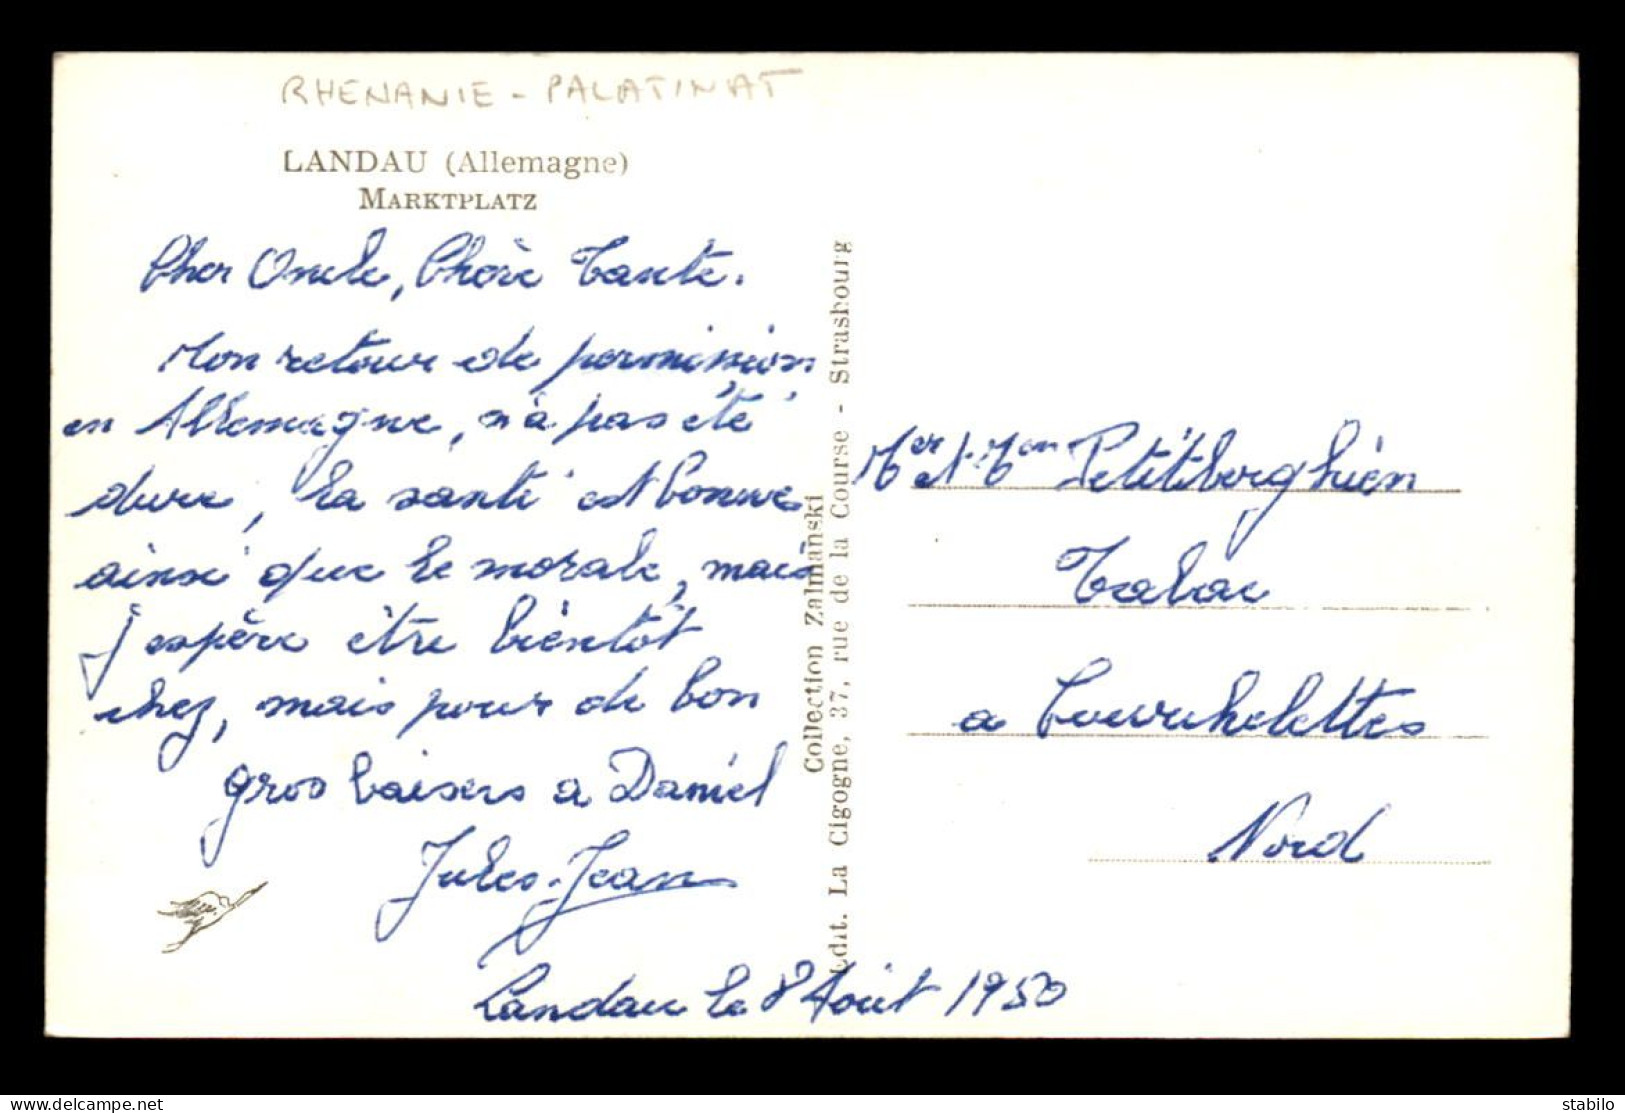 RHENANIE - PALATINAT
LANDAU (Allemagne)
MARKTPLATZ
Cher Oncle, Chère Tante.
Mon retour de permission
en Allemagne, n'a pas été
dure, la santé est bonne
ainsi que le morale, mais
j'espère être bientôt
chez, mais pour de bon
gros baisers a Daniel
Jules-Jean
Landau le 8 Août 1950
Collection Zalmanski
Edit. La Cigogne, 37, rue de la Course - Strasbourg
Mer et Men Petitberghien
a Courchelettes
Nord
delcampe.net
stabilo